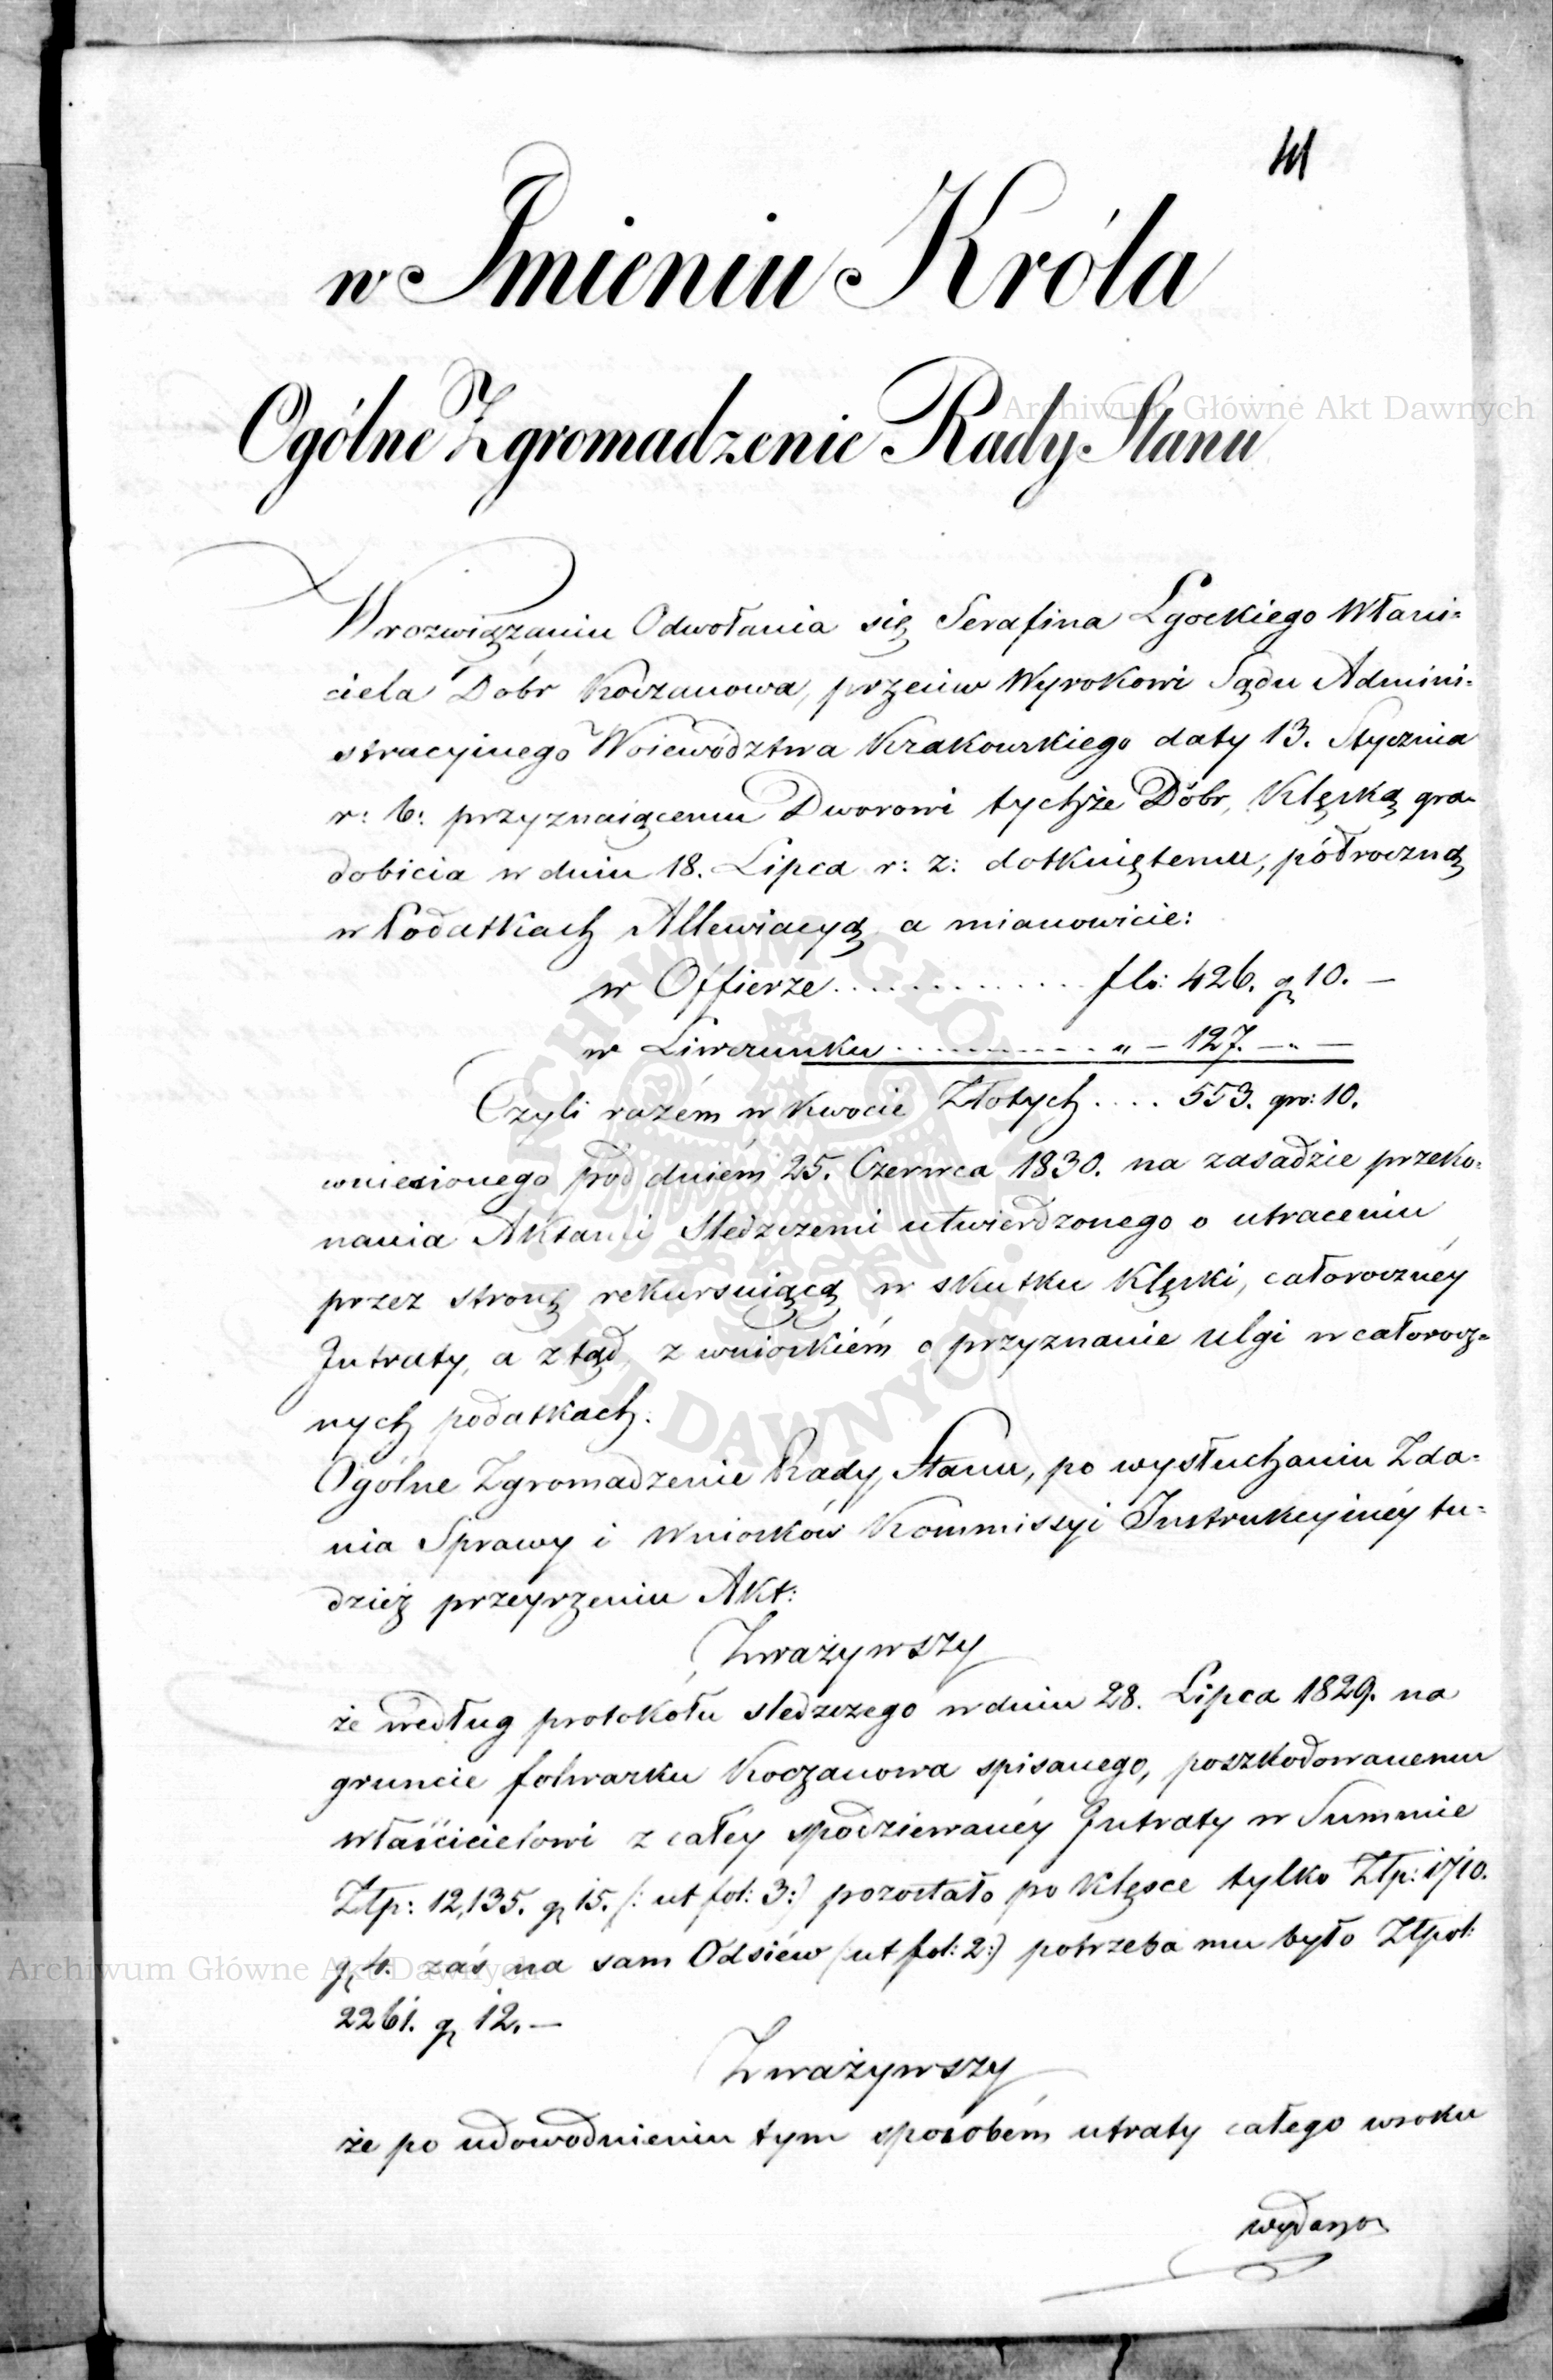 141
w Imieniu Króla
Ogólne Zgromadzenie Rady Stanu
W rozwiązaniu Odwołania się Serafina Lgockiego Właści-
ciela Dóbr Koczanowa, przeciw Wyrokowi Sądu Admini-
stracyinego Woiewództwa Krakowskiego daty 13. Stycznia
r: b: przyznaiącemu Dworowi tychże Dóbr, Klęską gra-
dobicia w dniu 18. Lipca r: z: dotkniętemu, półroczną
w Podatkach Allewiacyą a mianowicie:
w Offierze ............ fl: 426. g 10. —
w Liwerunku ............ „ — 127. — „ —
Czyli razém w kwocie Złotych .... 553. gro: 10.
wniesionego pod dniém 25. Czerwca 1830. na zasadzie przeko-
nania Aktami Sledczemi utwierdzonego o utraceniu
przez stronę rekursuiącą w skutku Klęski, całorocznéy
Intraty, a ztąd z wnioskiém o przyznanie ulgi w całorocz-
nych podatkach.
Ogólne Zgromadzenie Rady Stanu, po wysłuchaniu Zda-
nia Sprawy i Wniosków Kommissyi Instrukcyinéy tu-
dzież przeyrzeniu Akt:
Zważywszy
że według protokółu sledczego w dniu 28. Lipca 1829. na
gruncie folwarku Koczanowa spisanego, poszkodowanemu
właścicielowi z całéy spodziewanéy Intraty w Summie
Złp: 12,135. g 15. /: ut fol: 3:/ pozostało po klęsce tylko Złp: 1710.
g 4. zaś na sam Odsiéw /: ut fol: 2:/ potrzeba mu było Złpol:
2261. g 12. —
Zważywszy
że po udowodnieniu tym sposobém utraty całego wroku
Archiwum Główne Akt Dawnych
Archiwum Główne Akt Dawnych
ARCHIWUM GŁÓWNE AKT DAWNYCH